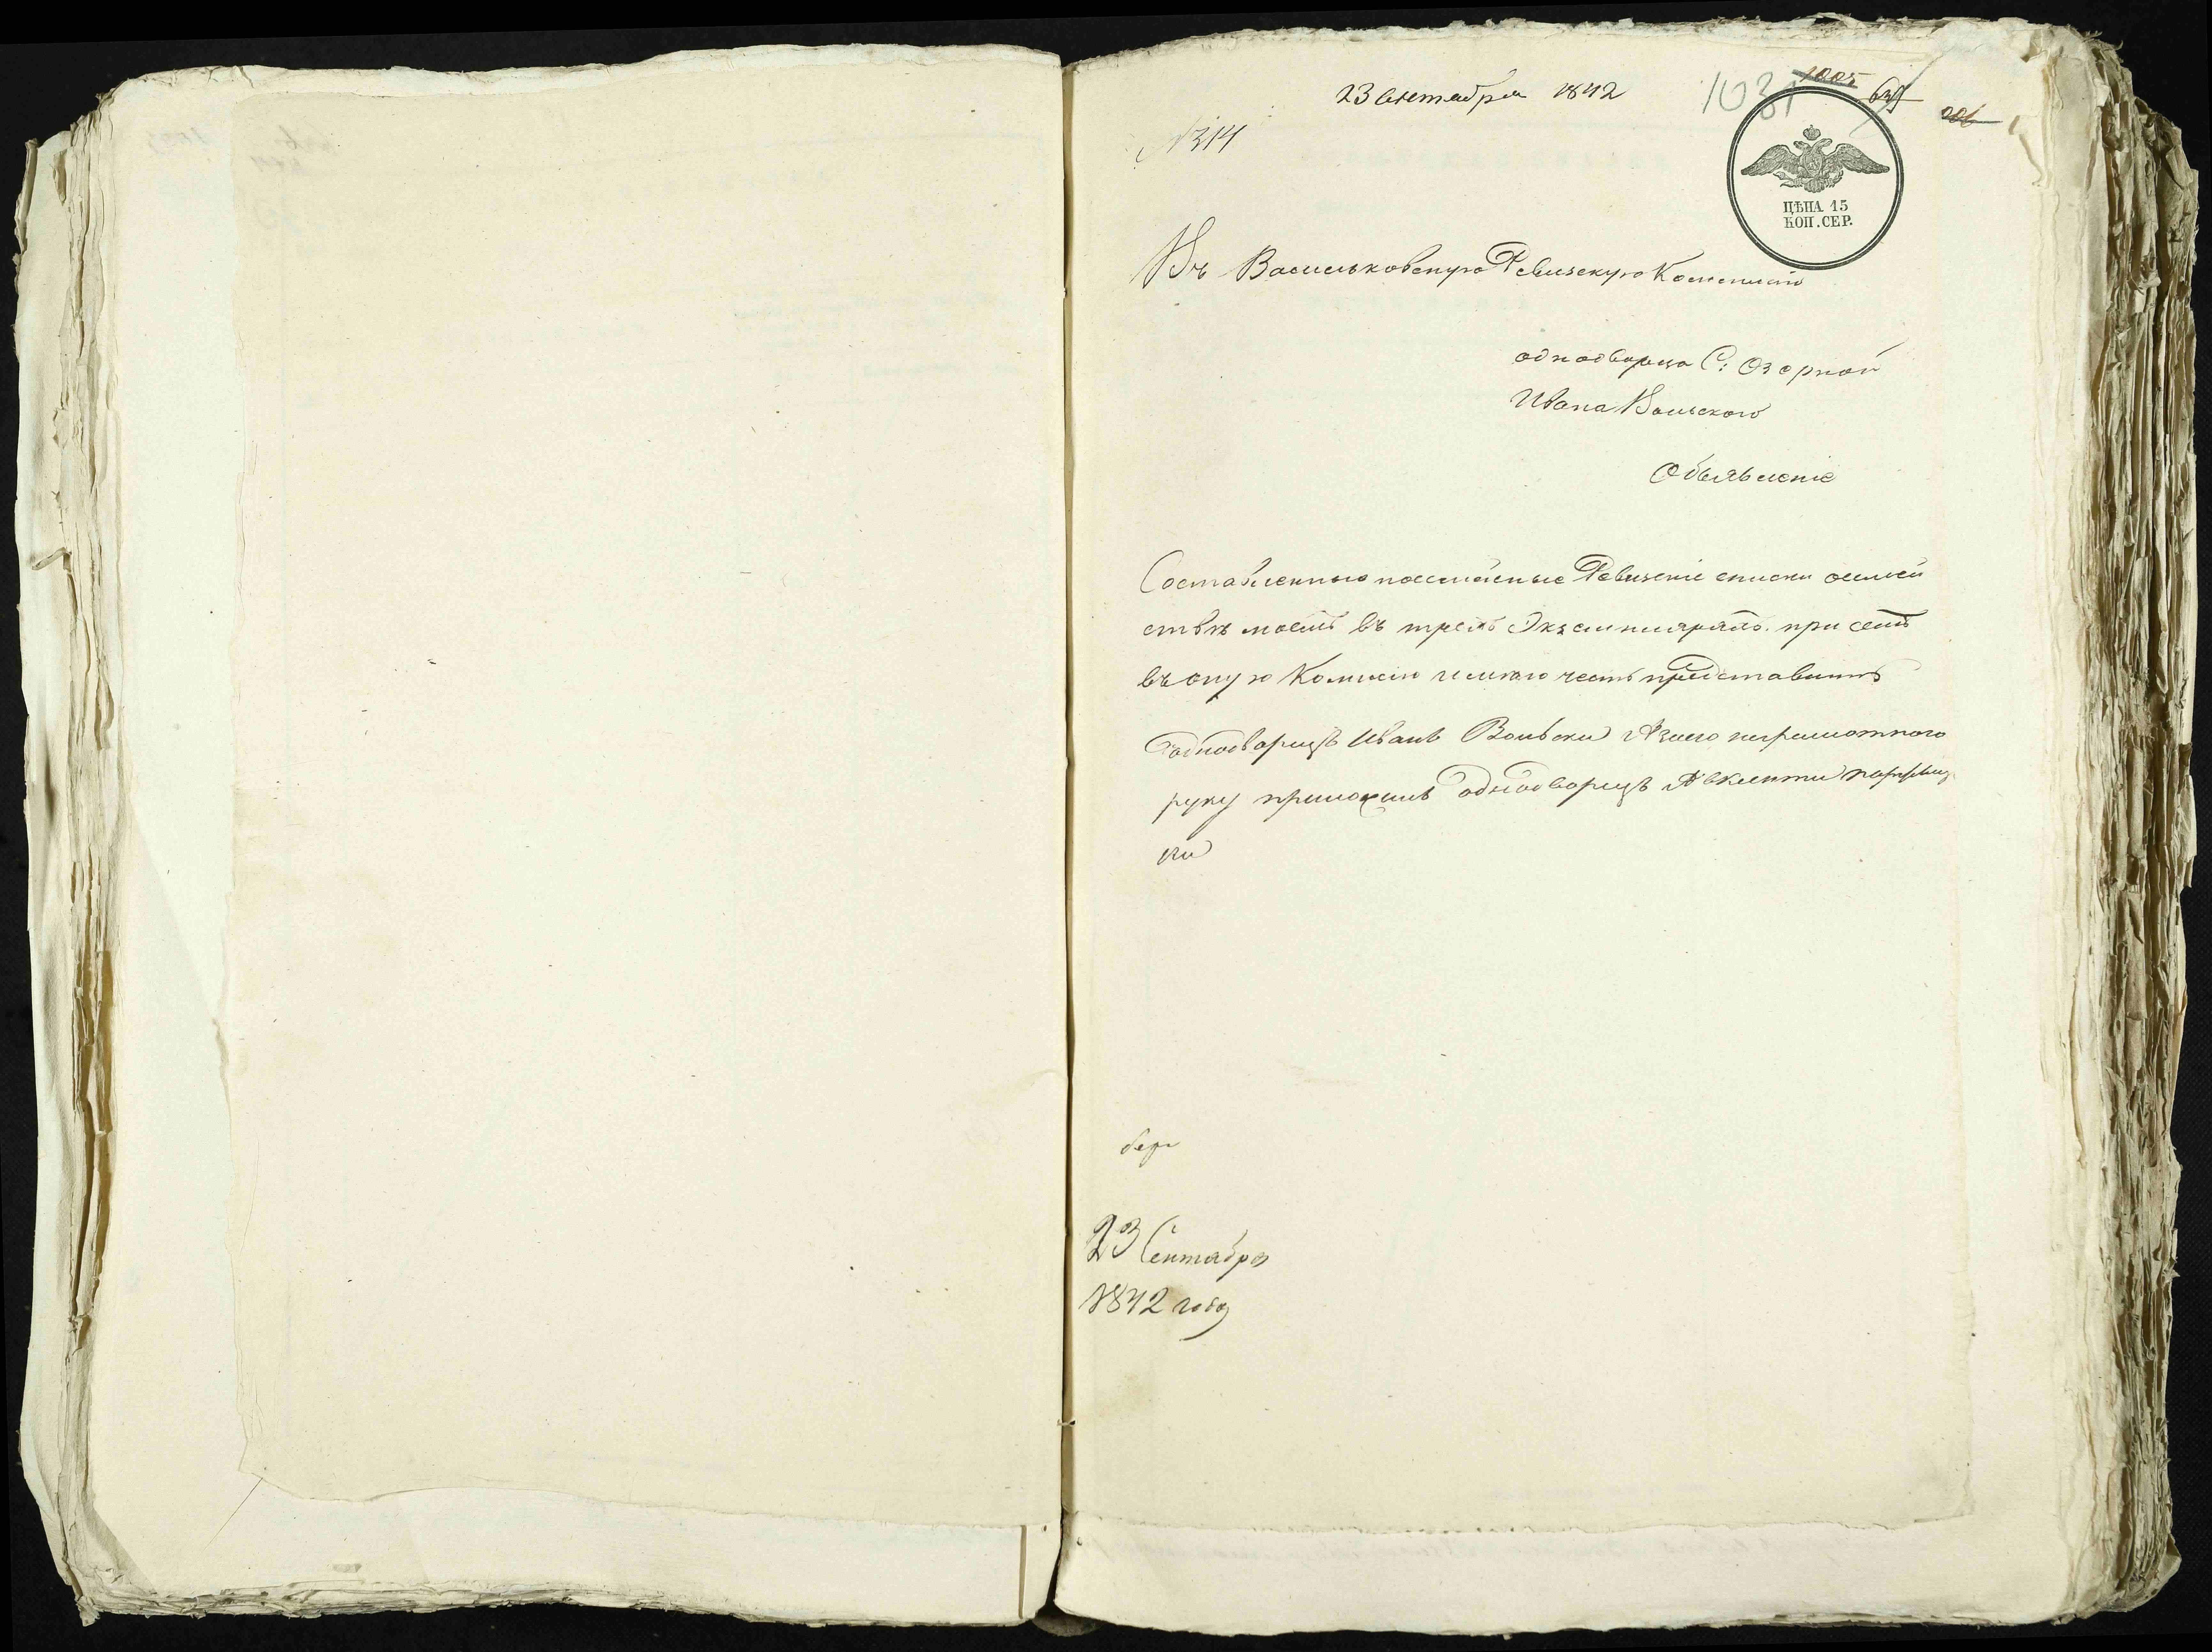 23 Сентября 1842
1031
1005
631
206
№ 314
ЦѢНА 15
КОП. СЕР.
Въ Васильковскую Ревизскую Коммисию
однодворца С: Озерной
Ивана Вольского
Объявленіе
Составленные посемейные Ревизскіе списки осемей
ствѣ моемъ въ трехъ Экземплярахъ при семъ
въ оную Комисію имѣю честь представить
однодворецъ Иванъ Вольски Азанего неграмотного
руку приложилъ однодворецъ Авкленти
ки
23 Сентября
1842 года